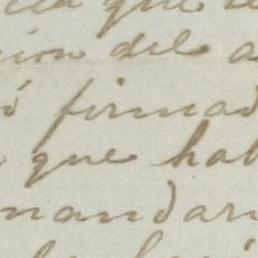 que
cion del a
ó firmad
que hab
mandar